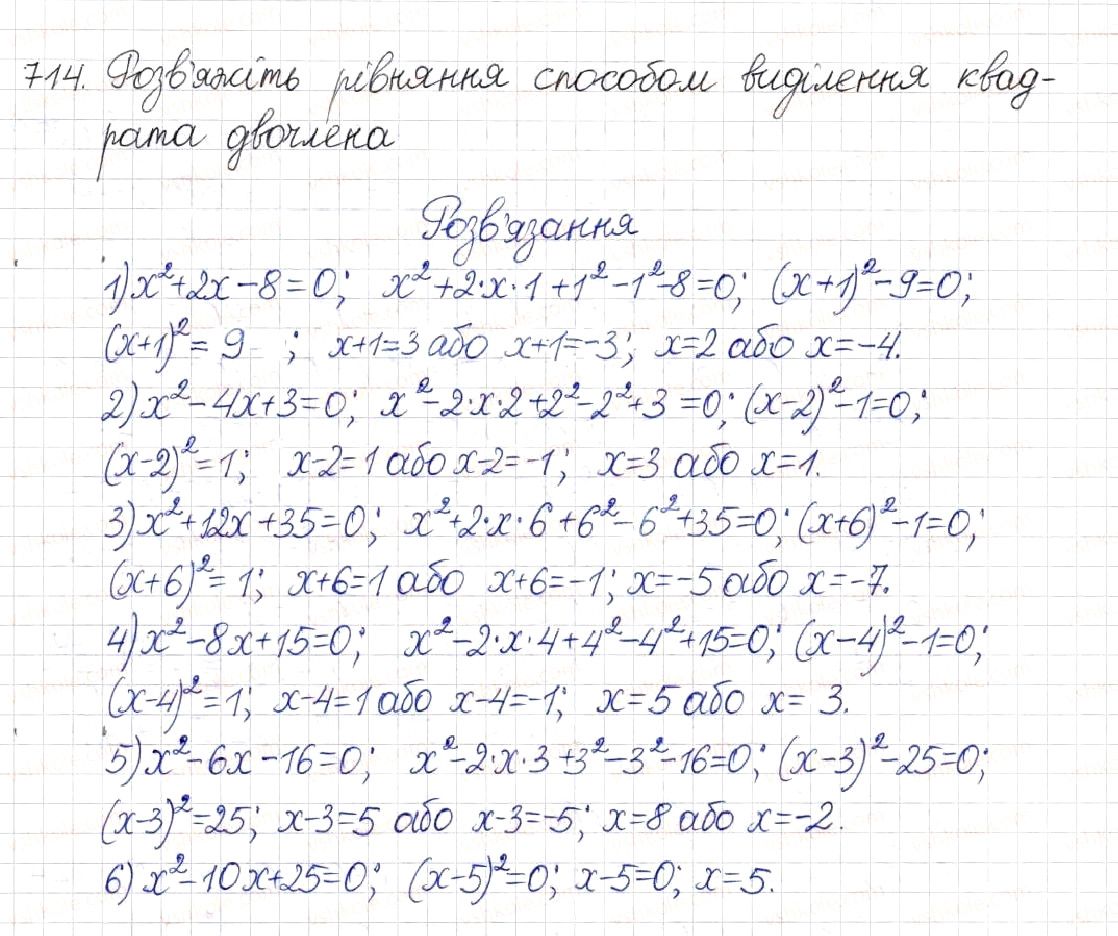 714. Розв'яжіть рівняння способом виділення квад-
рата двочлена
Розв'язання
1) x²+2x-8=0; x²+2·x·1+1²-1²-8=0; (x+1)²-9=0;
(x+1)²=9 ; x+1=3 або x+1=-3; x=2 або x=-4.
2) x²-4x+3=0; x²-2·x·2+2²-2²+3=0; (x-2)²-1=0;
(x-2)²=1; x-2=1 або x-2=-1; x=3 або x=1.
3) x²+12x+35=0; x²+2·x·6+6²-6²+35=0; (x+6)²-1=0;
(x+6)²=1; x+6=1 або x+6=-1; x=-5 або x=-7.
4) x²-8x+15=0; x²-2·x·4+4²-4²+15=0; (x-4)²-1=0;
(x-4)²=1; x-4=1 або x-4=-1; x=5 або x=3.
5) x²-6x-16=0; x²-2·x·3+3²-3²-16=0; (x-3)²-25=0;
(x-3)²=25; x-3=5 або x-3=-5; x=8 або x=-2.
6) x²-10x+25=0; (x-5)²=0; x-5=0; x=5.